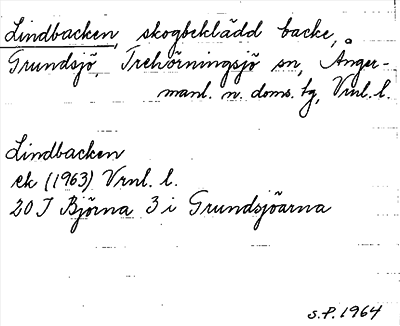 Lindbacken, skogbeklädd backe,
Grundsjö, Trehörningsjö sn, Ånger-
manl. n. doms. tg, Vrnl. l.
Lindbacken
ek (1963) Vrnl. l.
20 J Björna 3 i Grundsjöarna
S.P. 1964